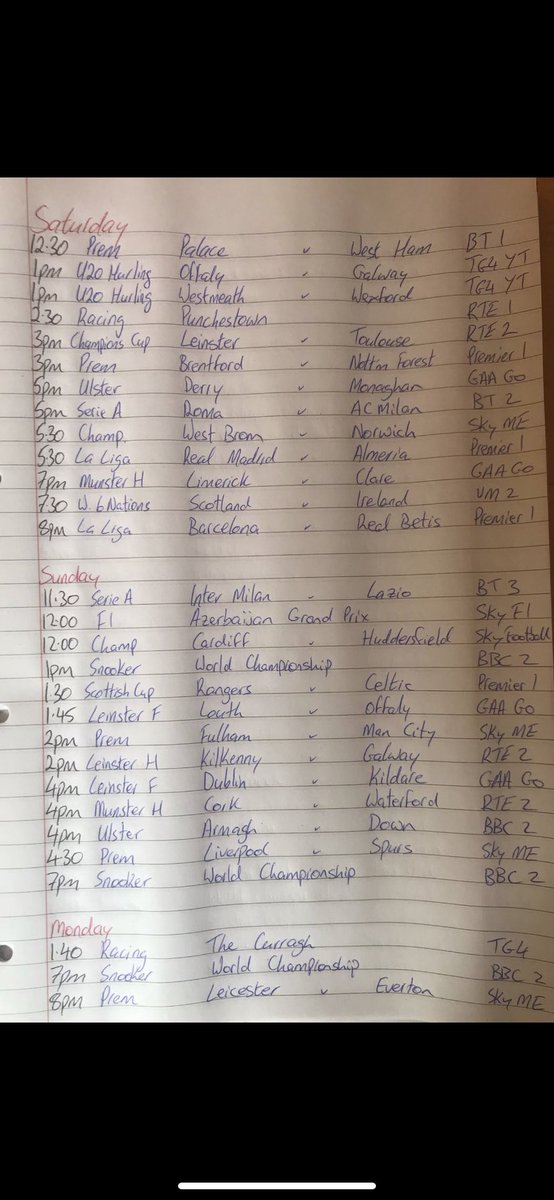 Saturday
12:30 Prem Palace v West Ham BT 1
1pm U20 Hurling Offaly v Galway TG4 YT
1pm U20 Hurling Westmeath v Wexford TG4 YT
2:30 Racing Punchestown RTE 1
3pm Champions Cup Leinster v Toulouse RTE 2
3pm Prem Brentford v Nottm Forest Premier 1
5pm Ulster Derry v Monaghan GAA GO
5pm Serie A Roma v AC Milan BT 2
5.30 Champ. West Brom v Norwich Sky ME
5.30 La Liga Real Madrid v Almeria Premier 1
7pm Munster H Limerick v Clare GAA GO
7.30 W. 6 Nations Scotland v Ireland VM 2
8pm La Liga Barcelona v Real Betis Premier 1
Sunday
11.30 Serie A Inter Milan v Lazio BT 3
12:00 F1 Azerbaijan Grand Prix Sky F1
12:00 Champ Cardiff v Huddersfield Sky Football
1pm Snooker World Championship BBC 2
1.30 Scottish Cup Rangers v Celtic Premier 1
1.45 Leinster F Louth v Offaly GAA GO
2pm Prem Fulham v Man City Sky ME
2pm Leinster H Kilkenny v Galway RTE 2
4pm Leinster F Dublin v Kildare GAA GO
4pm Munster H Cork v Waterford RTE 2
4pm Ulster Armagh v Down BBC 2
4.30 Prem Liverpool v Spurs Sky ME
7pm Snooker World Championship BBC 2
Monday
1.40 Racing The Curragh TG4
7pm Snooker World Championship BBC 2
8pm Prem Leicester v Everton Sky ME